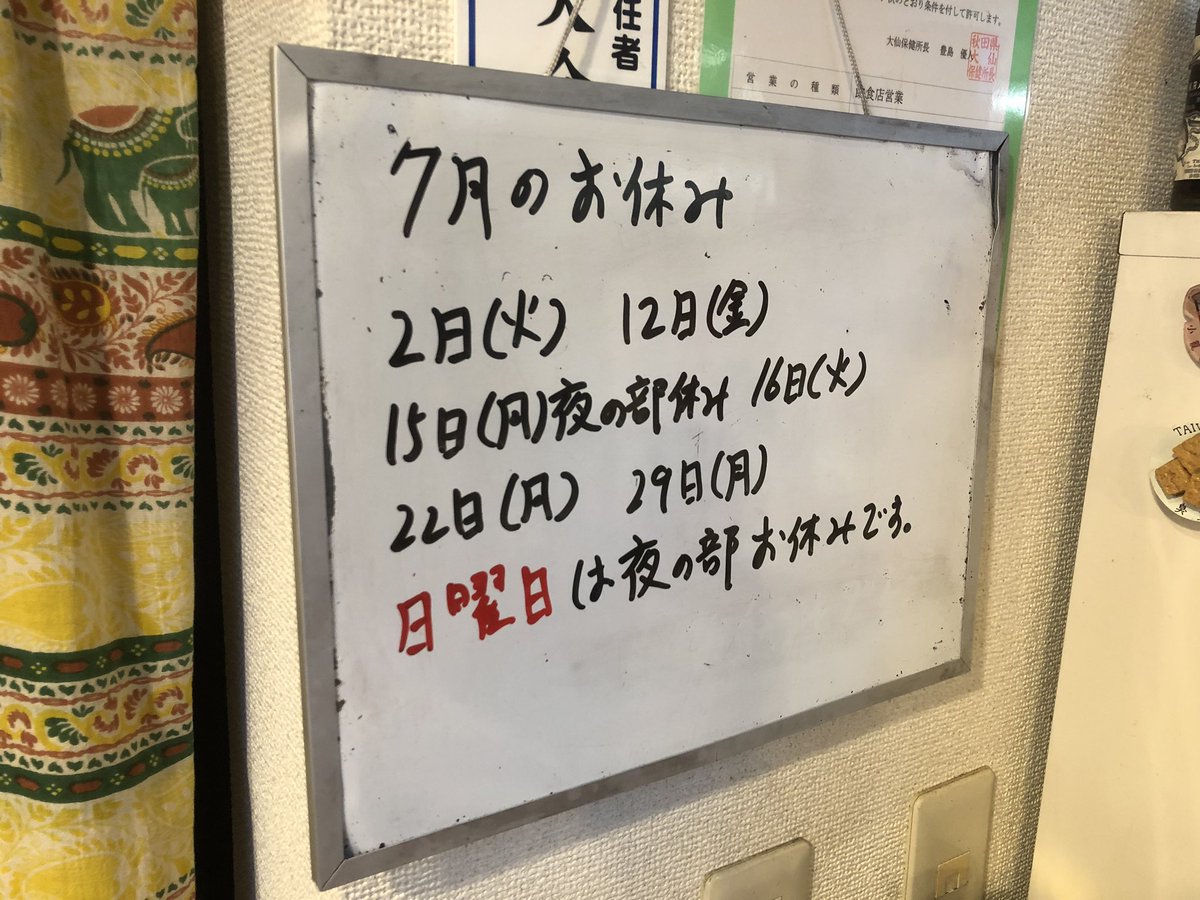 任者
り条件を付して許可します。
大仙保健所長 豊島 優人
秋田県
大仙
保健所長
営業の種類 飲食店営業
7月のお休み
2日(火) 12日(金)
15日(月)夜の部休み 16日(火)
22日(月) 29日(月)
日曜日は夜の部お休みです。